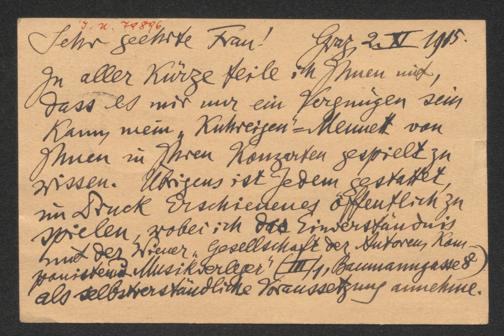 J. N. 79896
Sehr geehrte Frau! Graz, 2. XI 1915.
In aller Kürze teile ich Ihnen mit,
dass es mir nur ein Vergnügen sein
kann, mein „Kuhreigen"=Menuett von
Ihnen in Ihren Konzerten gespielt zu
wissen. Übrigens ist Jedem gestattet,
im Druck Erschienenes öffentlich zu
spielen, wobei ich das Einverständnis
mit der Wiener „Gesellschaft der Autoren, Kom-
ponisten u. Musikverleger" (III/1, Baumanngasse 8)
als selbstverständliche Voraussetzung annehme.